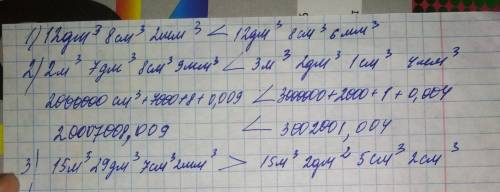 1) 12дм³ 8см³ 2мм³ < 12дм³ 8см³ 6мм³
2) 2м³ 7дм³ 8см³ 9мм³ < 3м³ 2дм³ 1см³ 4мм³
2000000 см³+7000+8+0,009 < 3000000+2000+1+0,004
20007008,009 < 3002001,004
3) 15м³ 29дм³ 7см³ 2мм³ > 15м³ 2дм² 5см³ 2см³